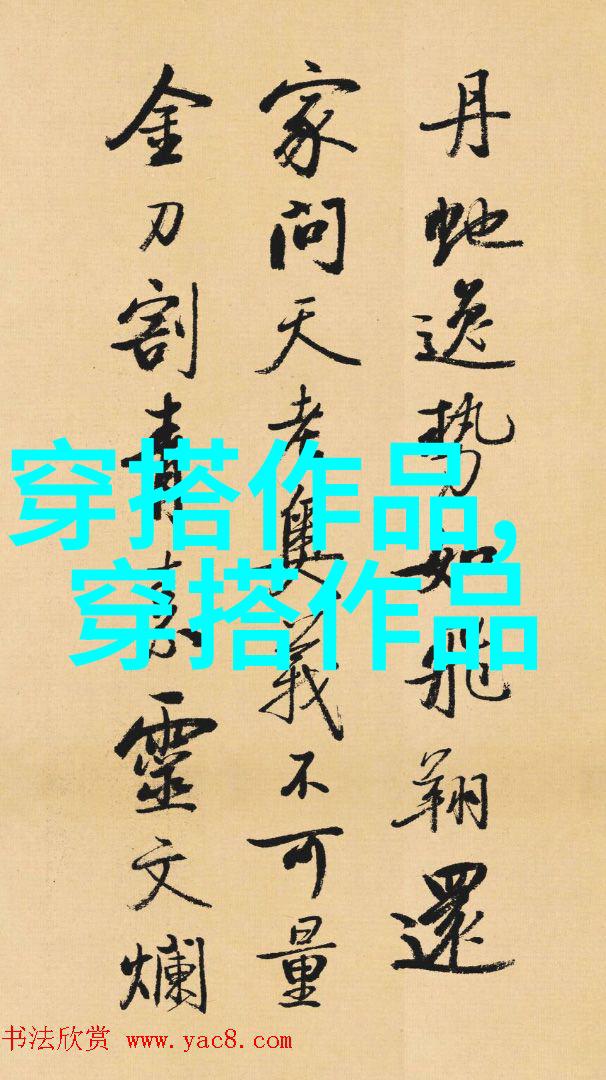 丹虵逸势如飛翔還
家問天老奥義不可量
金刀割青素靈文爛
穿搭作品,
穿搭作品
书法欣赏 www.yac8.com